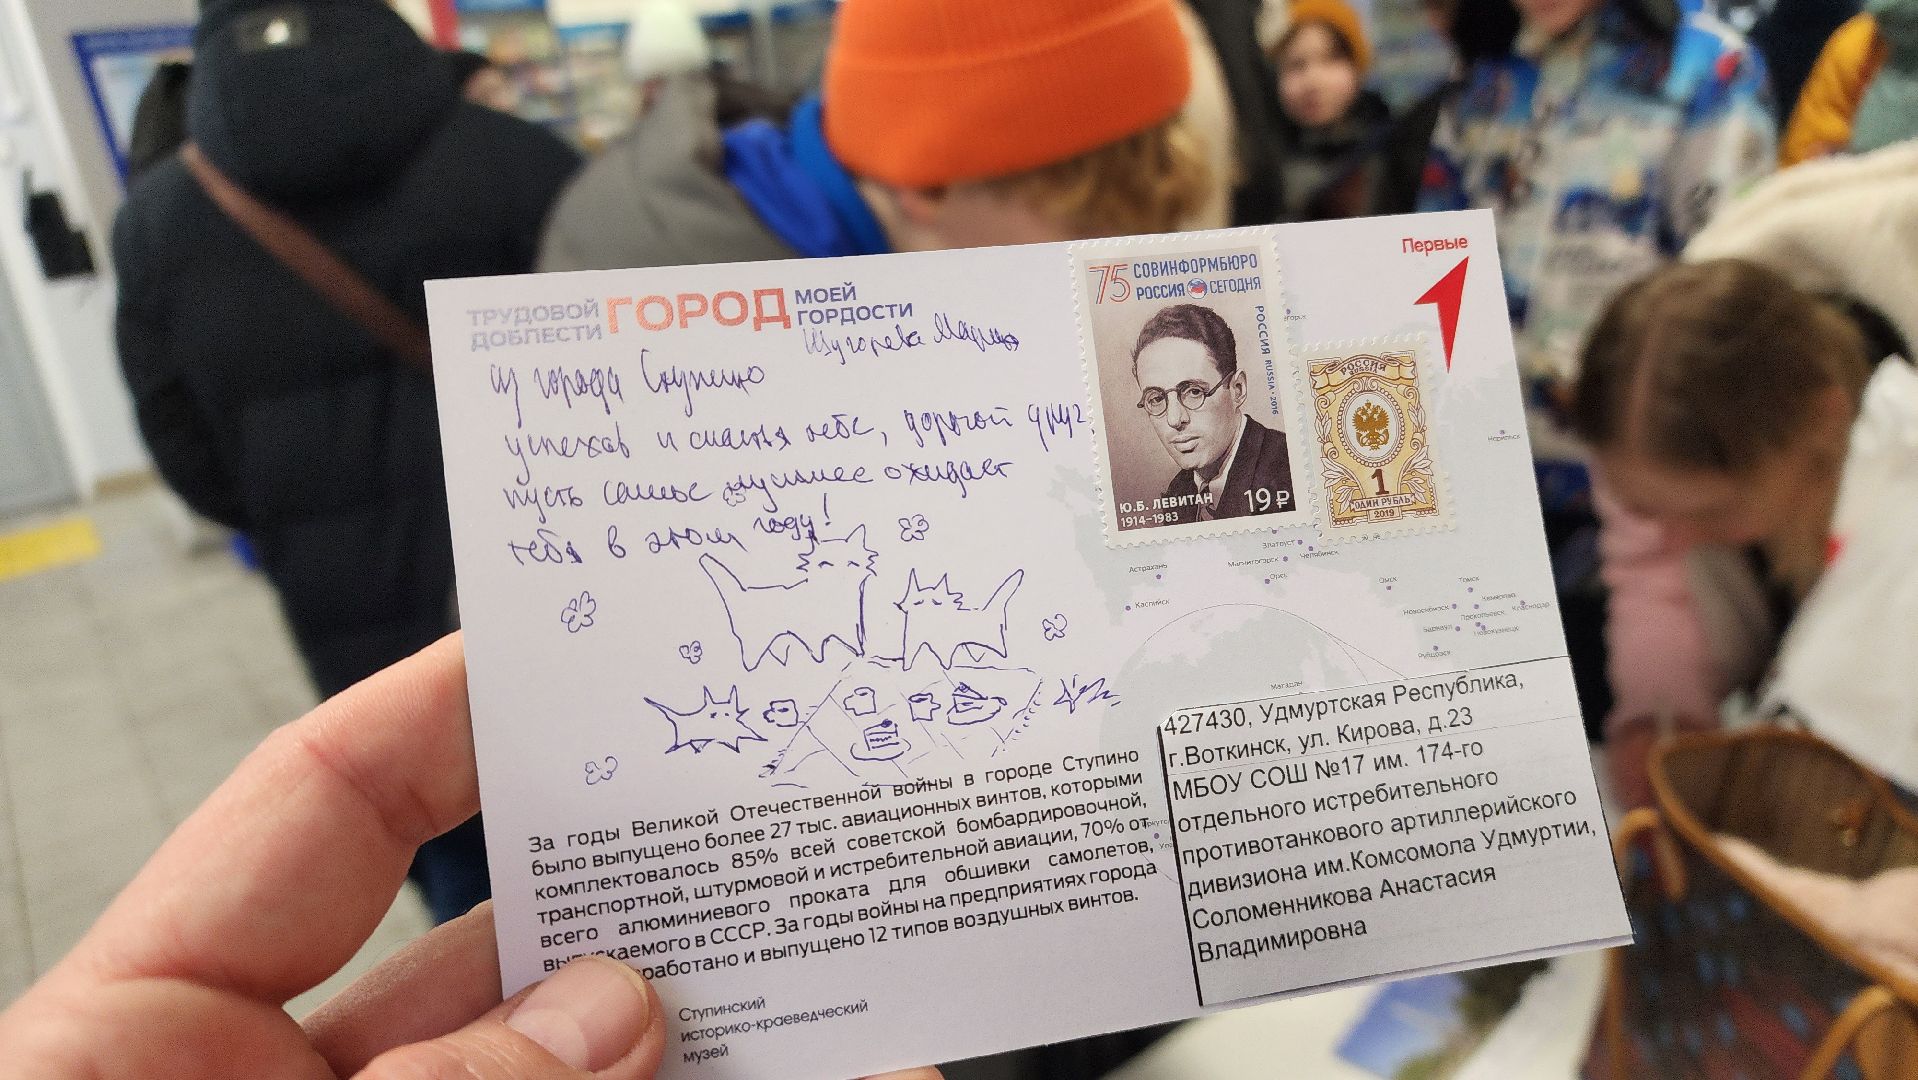 ТРУДОВОЙ ДОБЛЕСТИ ГОРОД МОЕЙ ГОРДОСТИ
из города Ступино
успехов и счастья тебе, дорогой друг
пусть самое лучшее ожидает
тебя в этом году!
75 СОВИНФОРМБЮРО
РОССИЯ СЕГОДНЯ
РОССИЯ RUSSIA 2016
Ю.Б. ЛЕВИТАН
1914–1983
19 ₽
РОССИЯ
1
ОДИН РУБЛЬ
2019
Первые
Норильск
Златоуст
Челябинск
Магнитогорск
Орск
Астрахань
Каспийск
Омск
Томск
Кемерово
Новосибирск
Прокопьевск
Краснодар
Барнаул
Новокузнецк
Рубцовск
Магадан
За годы Великой Отечественной войны в городе Ступино
было выпущено более 27 тыс. авиационных винтов, которыми
комплектовалось 85% всей советской бомбардировочной,
транспортной, штурмовой и истребительной авиации, 70% от
всего алюминиевого проката для обшивки самолетов,
скаемого в СССР. За годы войны на предприятиях города
работано и выпущено 12 типов воздушных винтов.
Ступинский
историко-краеведческий
музей
427430, Удмуртская Республика,
г.Воткинск, ул. Кирова, д.23
МБОУ СОШ №17 им. 174-го
отдельного истребительного
противотанкового артиллерийского
дивизиона им.Комсомола Удмуртии,
Соломенникова Анастасия
Владимировна